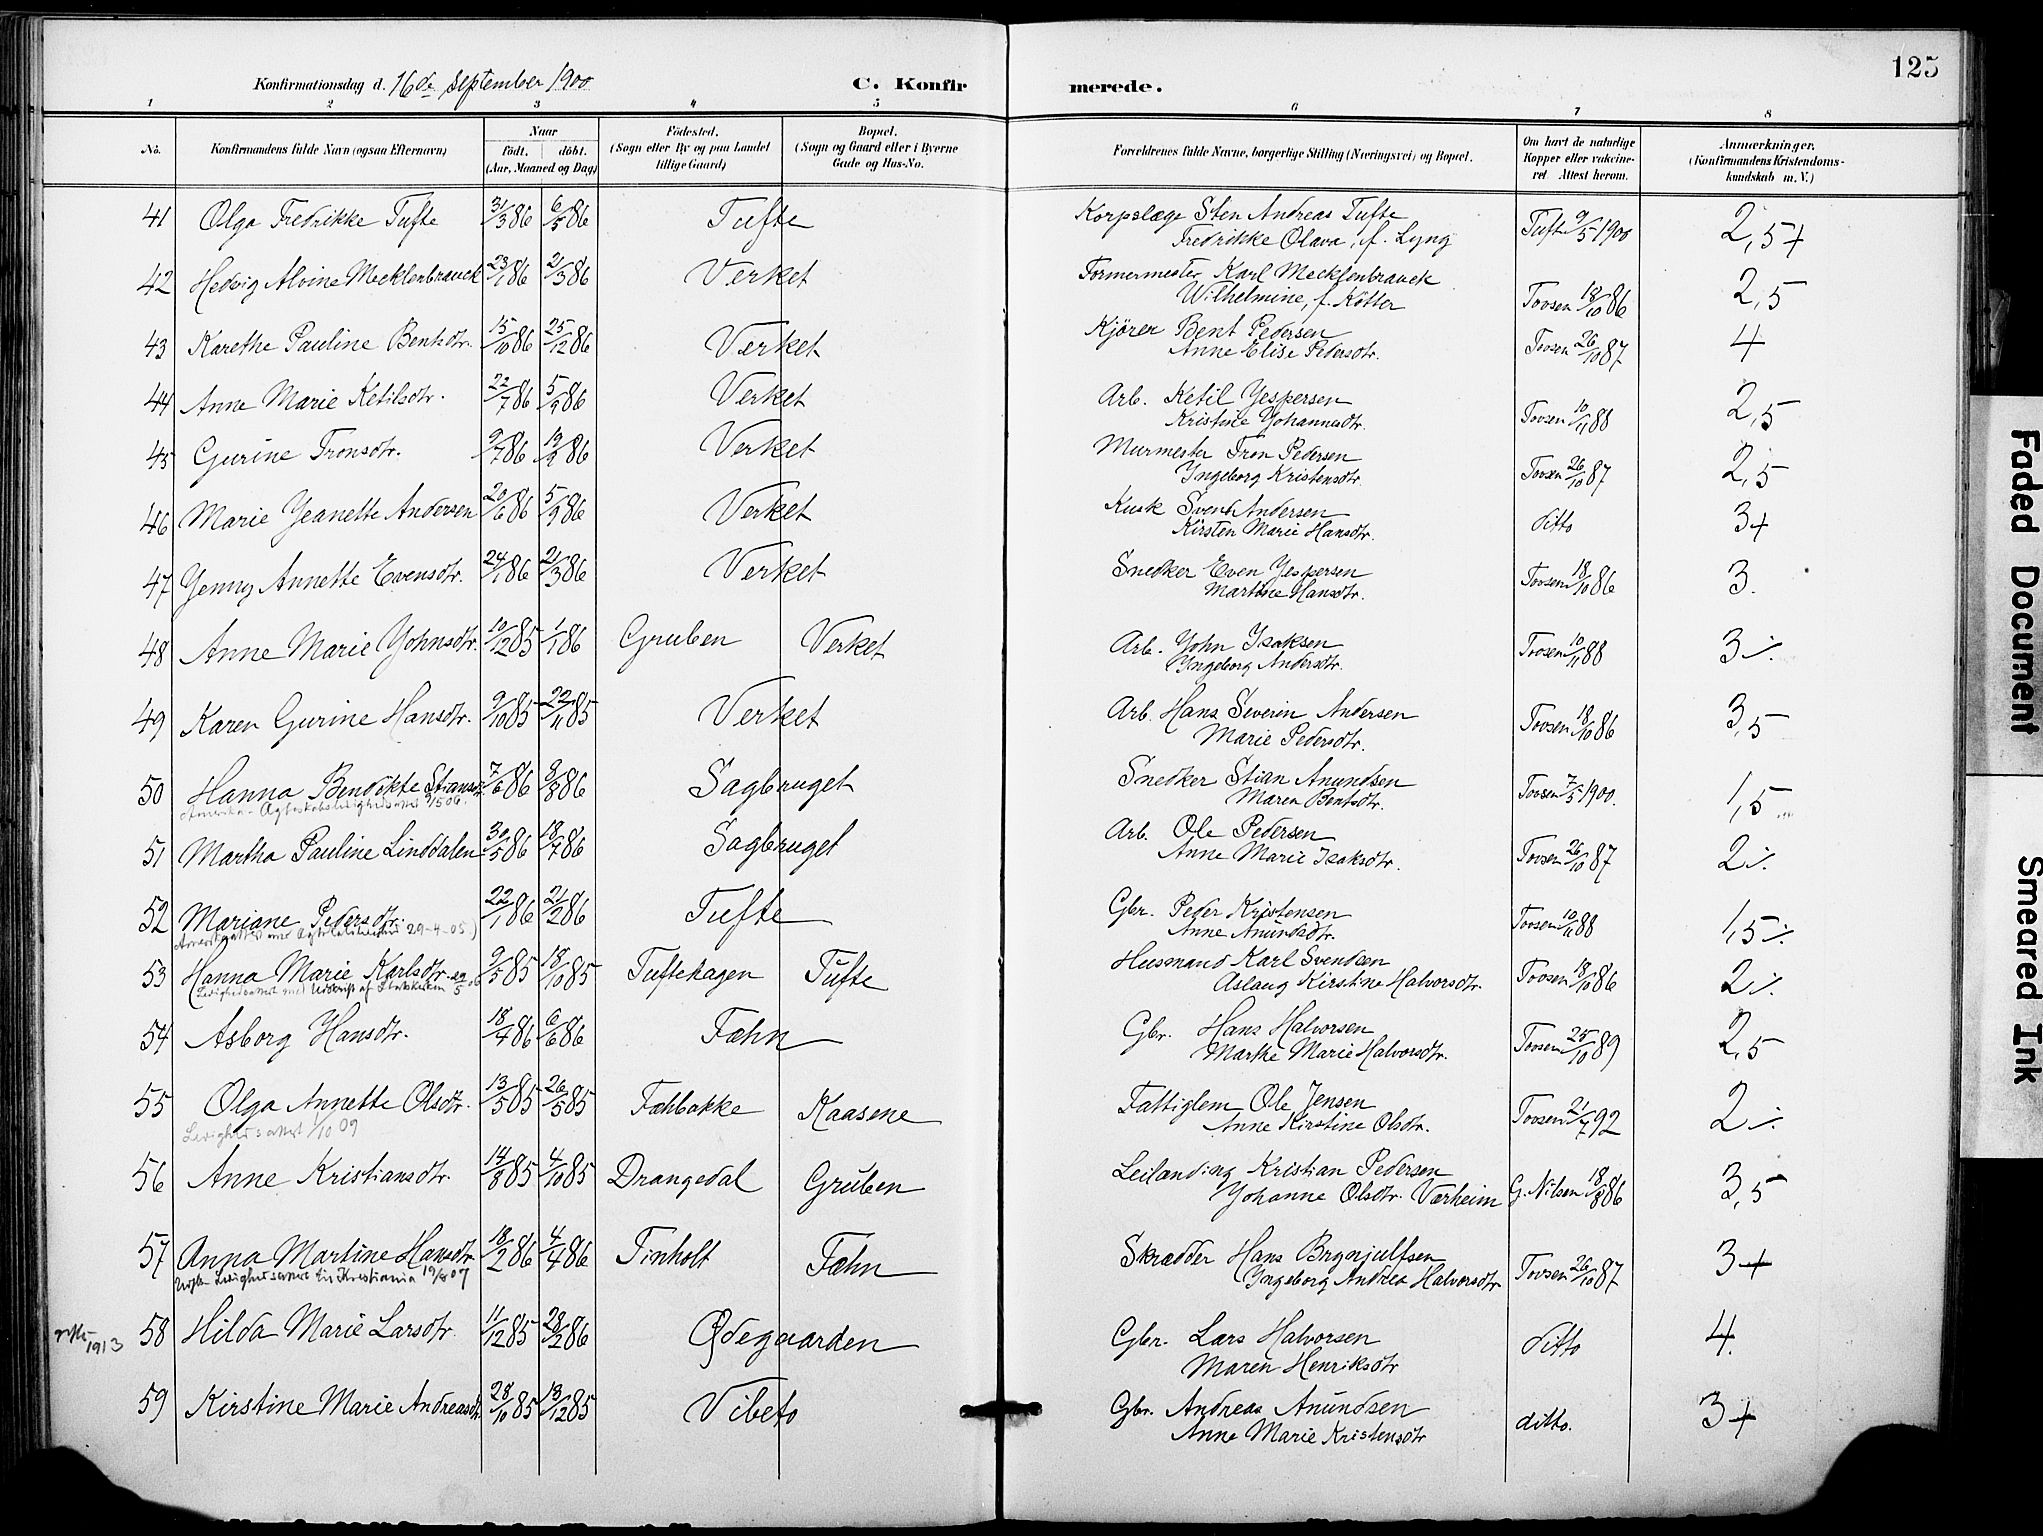 125
Konfirmationsdag d. 16de september 1900 C. Konfir merede.
1 2 3 4 5 6 7 8
No. Konfirmandens fulde Navn (ogsaa Efternavn) Naar født. døbt. (Aar, Maaned og Dag) Fødested. (Sogn eller By og paa Landet tillige Gaard) Bopæl. (Sogn og Gaard eller i Byerne Gade og Hus-No. Forældrenes fulde Navne, borgerlige Stilling (Næringsvei) og Bopæl. Om havt de naturlige Kopper eller vakcineret Attest herom. Anmærkninger. (Konfirmandens Kristendomskundskab m. V.)
41 Olga Fredrikke Tufte 31/3 86 6/5 86 Tufte Korpslæge Sten Andreas Tufte Tuft 9/5 1900 2,5+
Fredrikke Olava, f. Lyng
42 Hedvig Alvine Mecklenbrauck 23/1 86 21/3 86 Verket Formermester Karl Mecklenbrauck 2,5
Wilhelmine, f. Kötter Tovsen 18/10 86
43 Karethe Pauline Bentsdtr. 15/10 86 25/12 86 Verket Kjörer Bent Pedersen Tovsen 26/10 87 4
Anne Elise Pedersdtr.
44 Anne Marie Ketilsdtr. 22/7 86 5/9 86 Verket Arb. Ketil Yespersen Tovsen 10/11 88 2,5
Kristine Yohannesdtr.
45 Gurine Tronsdtr. 9/7 86 19/9 86 Verket Murmester Tron Pedersen Tovsen 26/10 87 2,5
Yngeborg Kristensdtr.
46 Marie Yeanette Andersen 20/6 86 5/9 86 Verket Kusk Svend Andersen ditto 3+
Kirsten Marie Hansdtr.
47 Yenny Annette Evensdtr. 24/1 86 21/3 86 Verket Snedker Even Yespersen Tovsen 18/10 86 3.
Martine Hansdtr.
48 Anne Marie Yohnsdtr. 10/12 85 1/1 86 Gruben Verket Arb. Yohn Isaksen Tovsen 10/11 88 3 ⁒
Yngeborg Andersdtr.
49 Karen Gurine Hansdtr. 9/10 85 22/11 85 Verket Arb. Hans Severin Andersen Tovsen 18/10 86 3,5
Marie Pedersdtr.
50 Hanna Bendikte Stiansdtr 7/6 86 8/8 86 Sagbruget Snedker Stian Anundsen Tovsen 7/5 1900. 1,5
Maren Bentsdtr.
51 Martha Pauline Linddalen 30/5 86 18/7 86 Sagbruget Arb. Ole Pedersen Tovsen 26/10 87 2 ⁒
Anne Marie Isaksdtr.
52 Mariane Pedersdtr. 22/1 86 21/2 86 Tufte Gbr. Peder Kristensen Tovsen 10/11 88 1,5 ⁒
29-4-05) Anne Anundsdtr.
53 Hanna Marie Karlsdtr. 9/5 85 18/10 85 Tuftehagen Tufte Husmand Karl Svendsen Tovsen 18/10 86 2 ⁒
Aslaug Kirstine Halvorsdtr.
54 Asborg Hansdtr. 18/4 86 6/6 86 Fæhn Gbr. Hans Halvorsen Tovsen 25/10 89 2,5
Marthe Marie Halvorsdtr.
55 Olga Annette Olsdtr. 13/5 85 26/5 85 Fæhbakke Kaasene Fattiglem Ole Jensen Tovsen 21/7 92 2 ⁒
Ledighedsattest 1/10 09 Anne Kirstine Olsdtr.
56 Anne Kristiansdtr. 14/8 85 4/10 85 Drangedal Gruben Leilænding Kristian Pedersen G. Nilsen 18/8 86 3,5
Yohanne Olsdtr. Værheim
57 Anna Martine Hansdtr. 18/2 86 4/4 86 Tinholt Fæhn Skrædder Hans Brynjulfsen Tovsen 26/10 87 3+
Ledighedsattest til Kristiania 19/8 07 Yngeborg Andrea Halvorsdtr.
1913 58 Hilda Marie Larsdtr. 11/12 85 28/2 86 Ødegaarden Gbr. Lars Halvorsen ditto 4.
Maren Henriksdtr
59 Kirstine Marie Andreasdtr. 28/10 85 13/12 85 Vibeto Gbr. Andreas Anundsen ditto. 3+
Anne Marie Kristensdtr
Faded Document
Smeared Ink